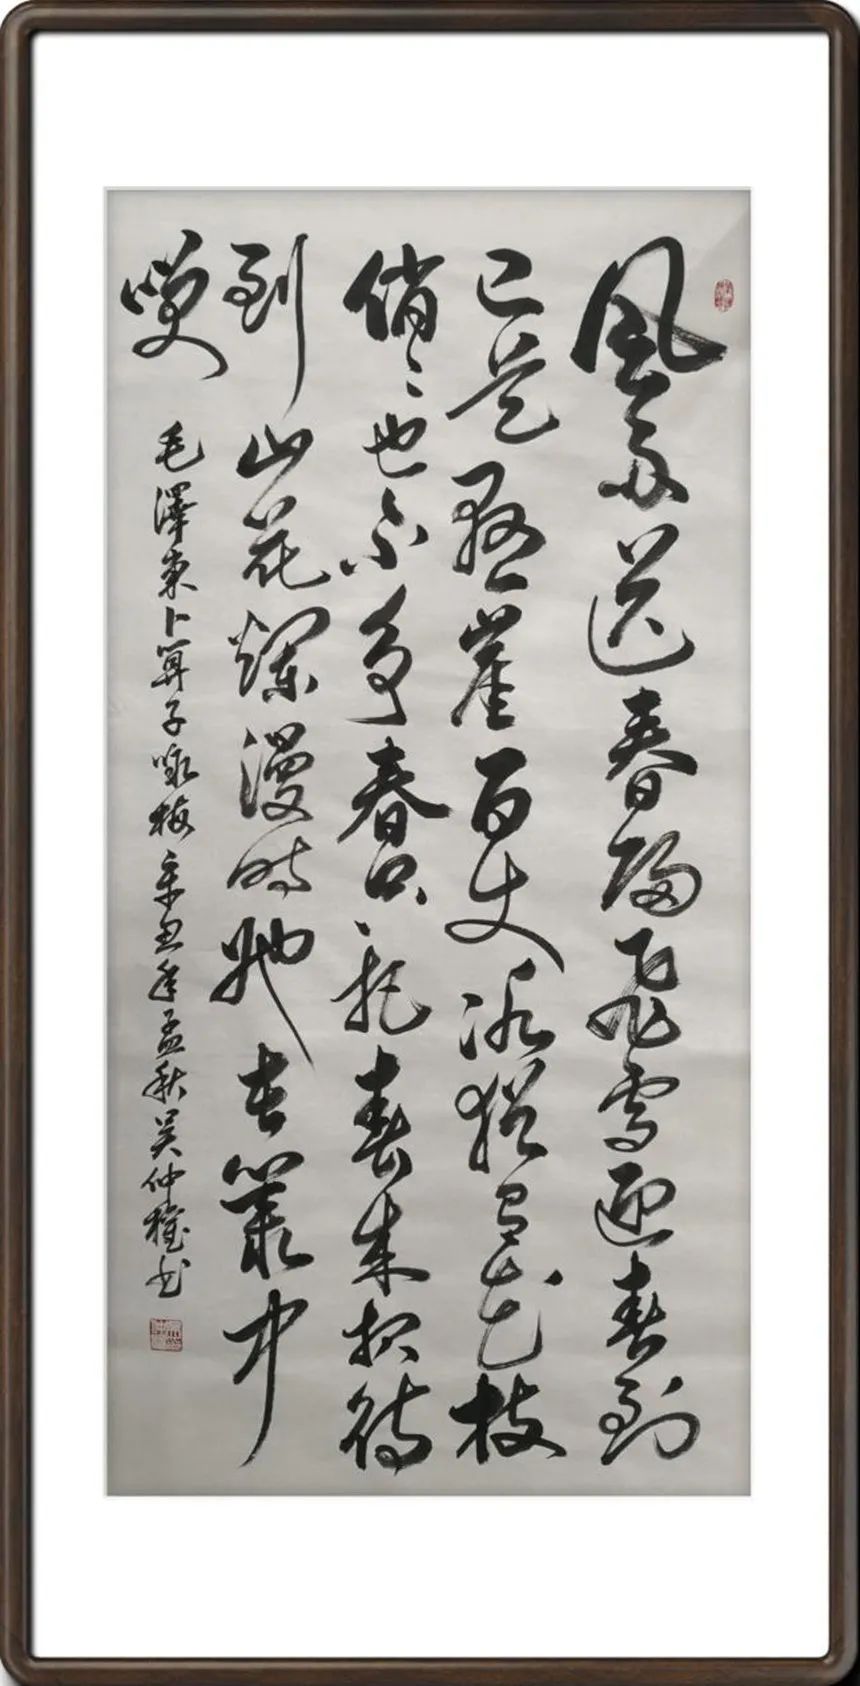 風雨送春歸飛雪迎春到
已是懸崖百丈冰猶有花枝
俏々也不争春只把春来报待
到山花爛漫時她在叢中
咲
毛澤東卜算子咏梅辛丑年孟秋吴仲书